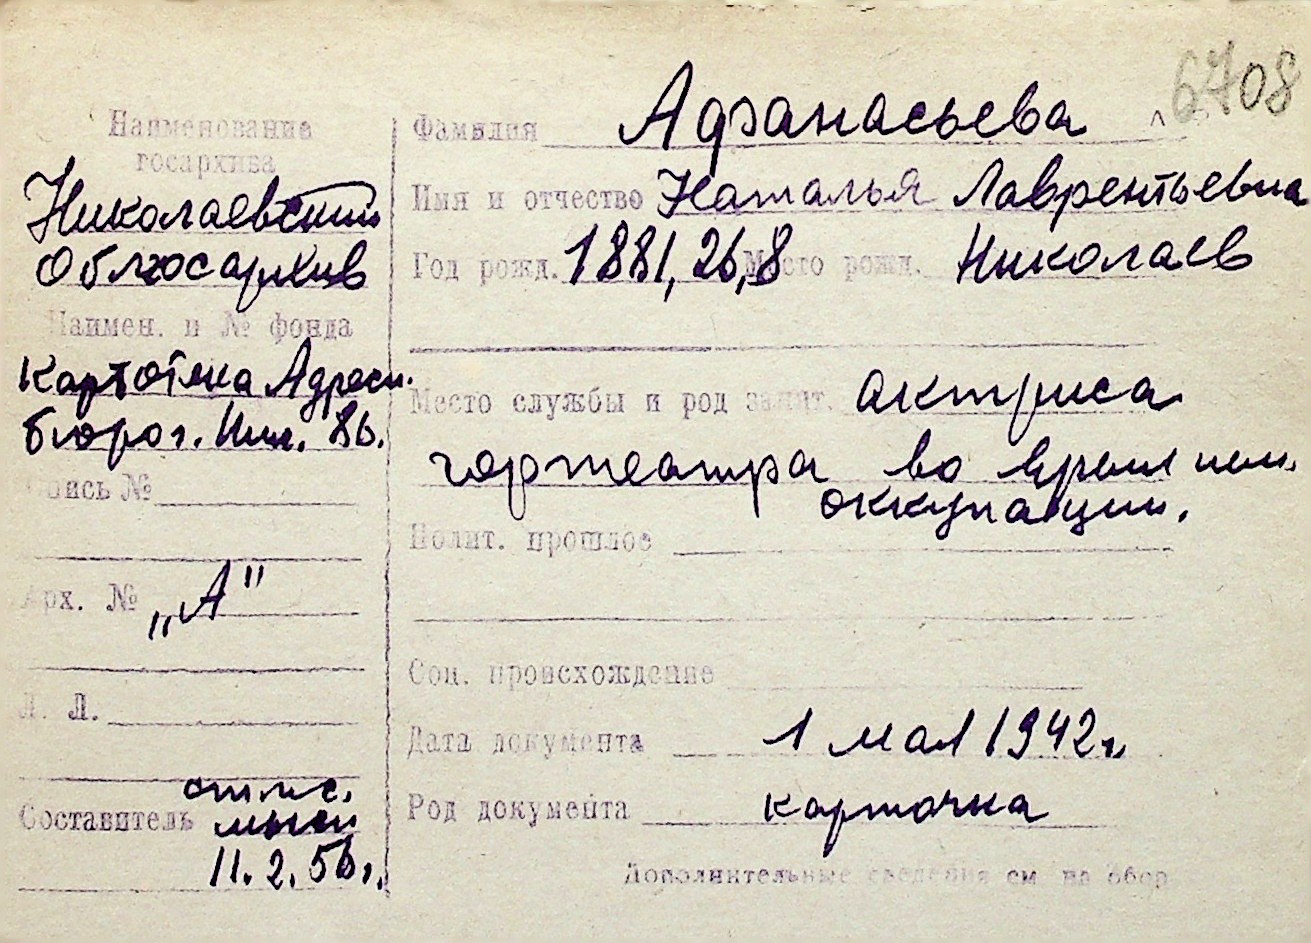 6708
Наименование
госархива
Николаевский
Облгосархив
Наимен. и № фонда
Картотека Адресн.
бюро г. Ник. 8ь.
Опись №
Арх. № „А"
Л. Л.
Составитель
11.2.56г.
Фамилия Афанасьева
Имя и отчество Наталья Лаврентьевна
Год рожд. 1881, 26, 8 Место рожд. Николаев
Место службы и род занят. актриса
гортеатра во время нем.
оккупации.
Полит. прошлое
Соц. происхождение
Дата документа 1 мая 1942 г.
Род документа карточка
Дополнительные сведения см на обор